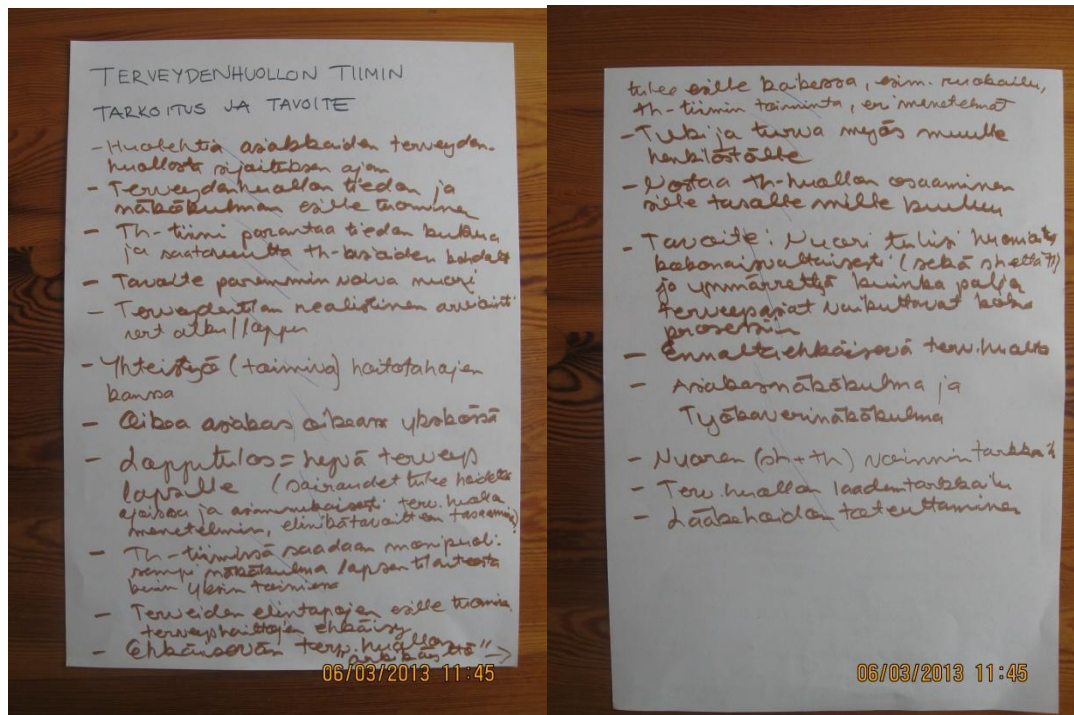 TERVEYDENHUOLLON TIIMIN
TARKOITUS JA TAVOITE
- Huolehtia asiakkaiden terveyden-
huollosta sijoituksen ajan
- Terveydenhuollon tiedon ja
näkökulman esille tuominen
- Th-tiimi parantaa tiedon kulkua
ja saatavuutta th-asioiden kohdalla
- Tavoite paremmin voiva nuori
- Terveydentilan realistinen arviointi
alku/loppu
- Yhteistyö (toimiva) hoitotahojen
kanssa
- Oikea asiakas oikeassa yksikössä
- Lopputulos = hyvä terveys
lapselle (sairaudet tulee hoidetuksi
ajoissa ja asianmukaisesti terv.huollon
menetelmin,
- Th-tiimissä saadaan monipuoli-
sempi näkökulma lapsen tilanteesta
kuin yksin toimiessa
- Terveiden elintapojen esille tuominen
terveyshaittojen ehkäisy
- Ehkäisevän terv.huollon
06/03/2013 11:45
tulee esille kaikessa, esim. ruokailu,
th-tiimin toiminta, eri menetelmät
- Tuki ja turva myös muulle
henkilöstölle
- Nostaa th-huollon osaaminen
sille tasolle mille kuuluu
- Tavoite: Nuori tulisi huomioitua
kokonaisvaltaisesti (sekä
ja ymmärrettyä kuinka paljon
terveysasiat vaikuttavat koko
prosessiin
- Ennaltaehkäisevä terv.huolto
- Asiakasnäkökulma ja
Työkaverinäkökulma
- Nuoren (sh+th) voinnin tarkkailu
- Terv.huollon laaduntarkkailu
- Lääkehoidon toteuttaminen
06/03/2013 11:45